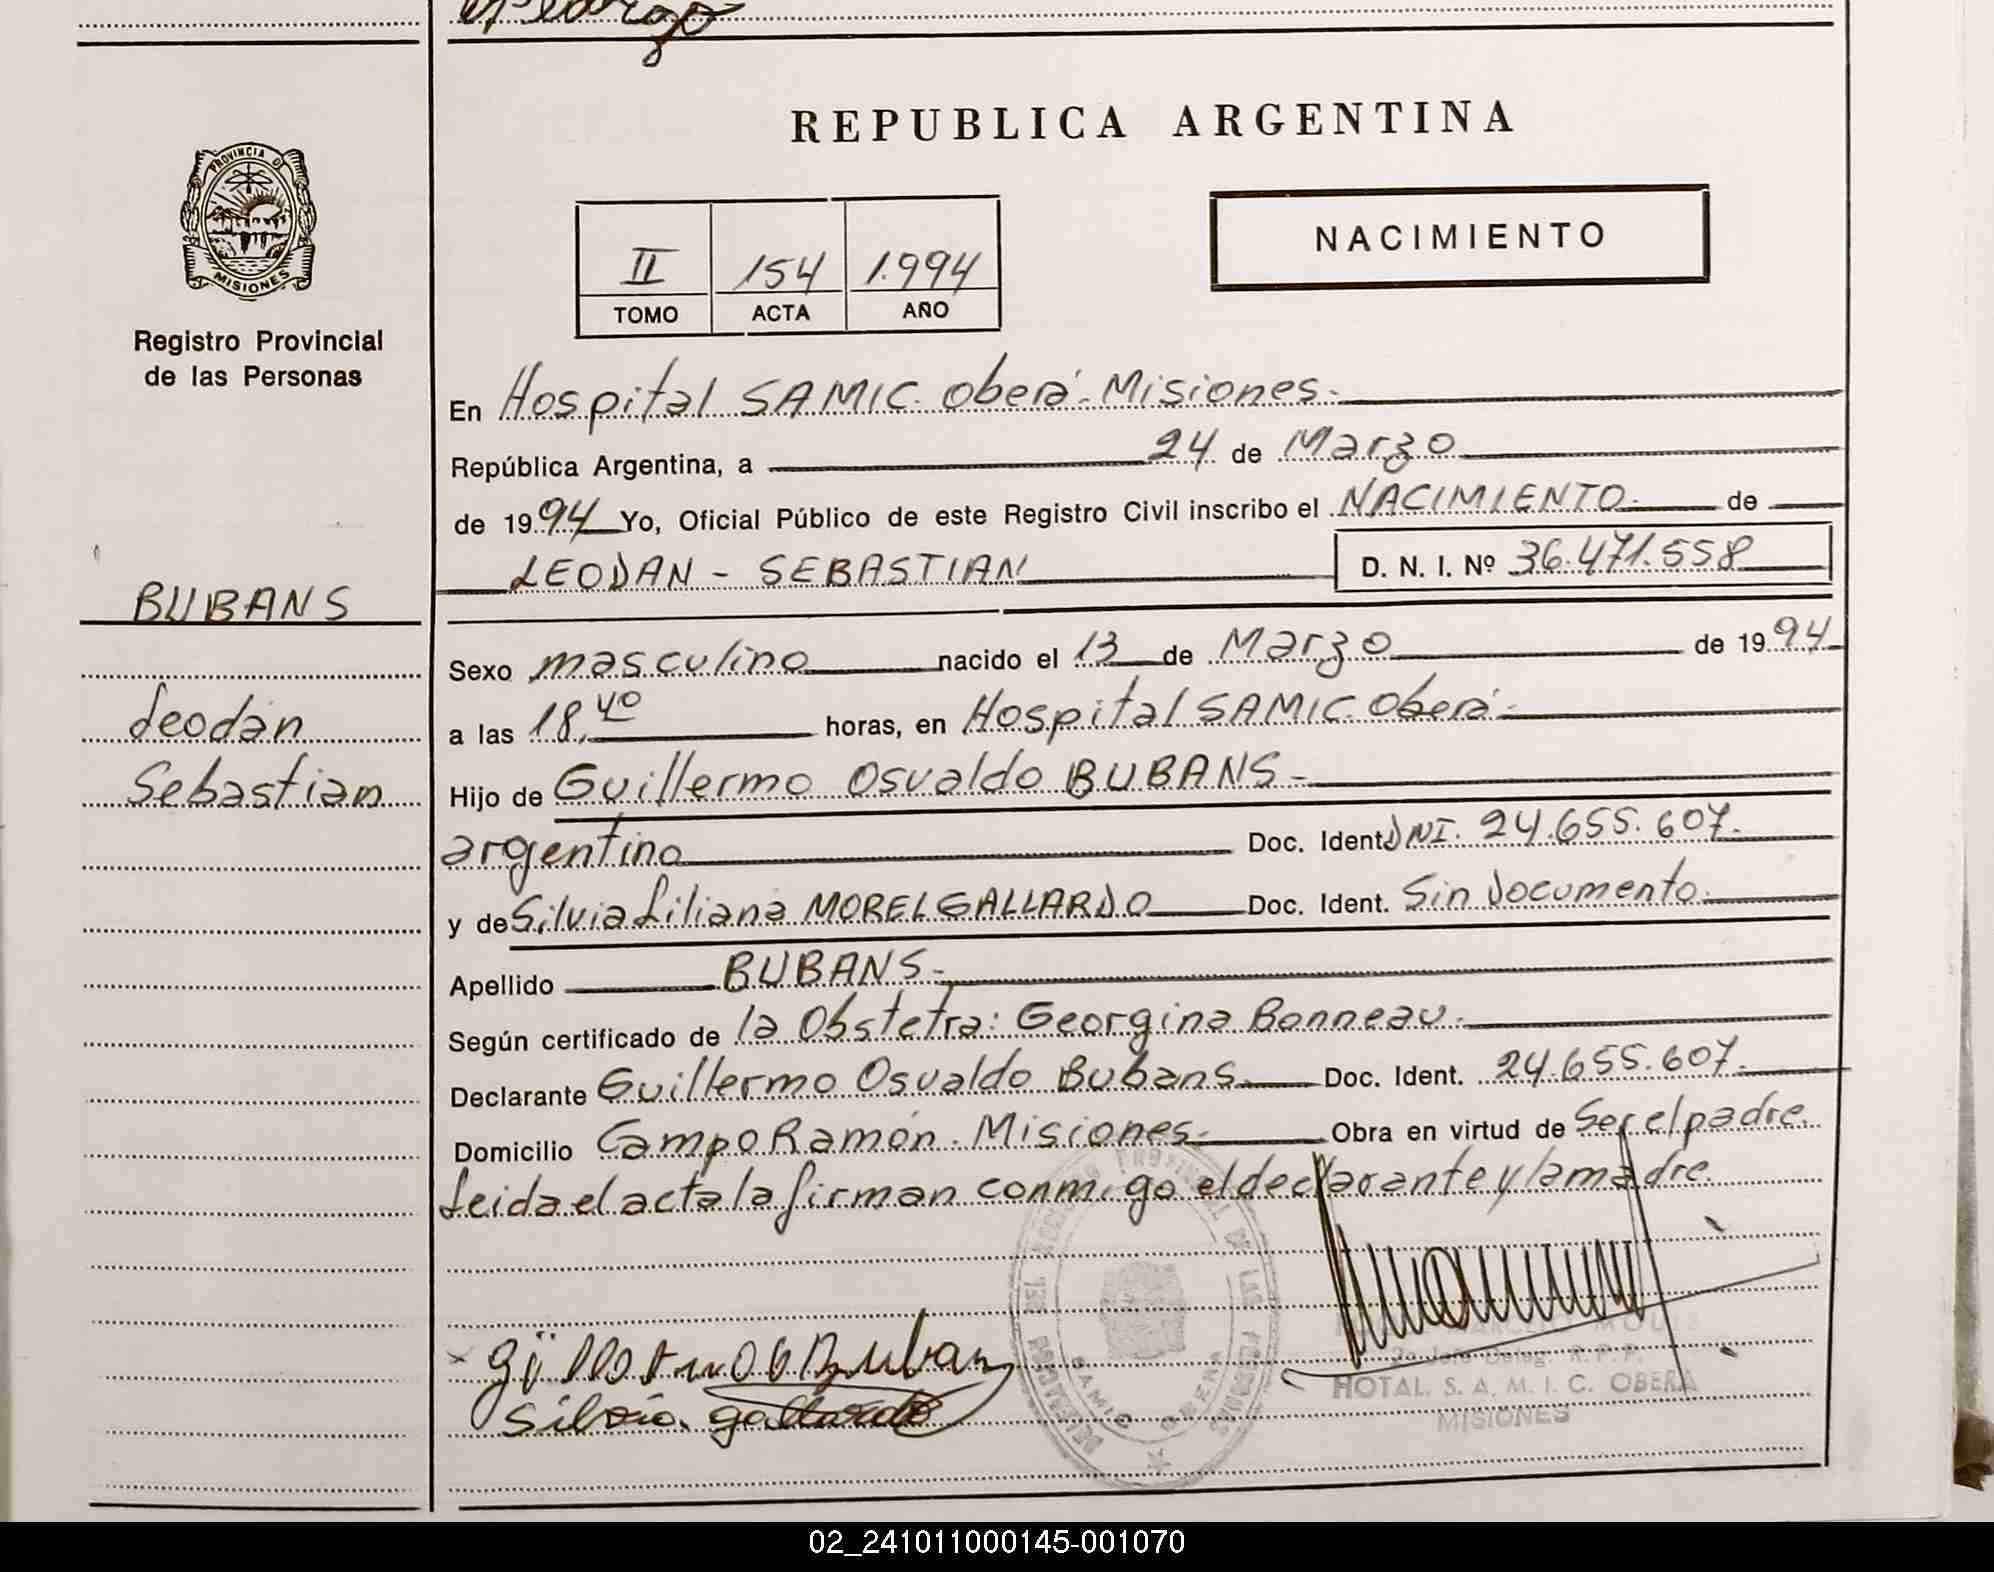 REPUBLICA ARGENTINA
PROVINCIA D
MISIONES
Registro Provincial
de las Personas
NACIMIENTO
II 154 1.994
TOMO ACTA AÑO
En Hospital SAMIC. Oberá - Misiones.
República Argentina, a 24 de Marzo
de 1994 Yo, Oficial Público de este Registro Civil inscribo el NACIMIENTO de
LEODAN - SEBASTIAN D. N. I. Nº 36.471.558
BUBANS
Leodán
Sebastian
Sexo masculino nacido el 13 de Marzo de 1994
a las 18,40 horas, en Hospital SAMIC. Oberá -
Hijo de Guillermo Osvaldo BUBANS -
argentino Doc. Ident. DNI. 24.655.607.
y de Silvia Liliana MOREL GALLARDO Doc. Ident. Sin Documento.
Apellido BUBANS -
Según certificado de la Obstetra: Georgina Bonneau.
Declarante Guillermo Osvaldo Bubans Doc. Ident. 24.655.607.
Domicilio Campo Ramón. Misiones. Obra en virtud de Ser el padre.
Leida el acta la firman conmigo el declarante y la madre.
DELEGACION DEL REGISTRO PROVINCIAL DE LAS PERSONAS
SAMIC OBERA
2o Jefe Deleg. R. P. P.
HOTAL. S. A. M. I. C. OBERA
MISIONES
silvia. gallardo
02_241011000145-001070